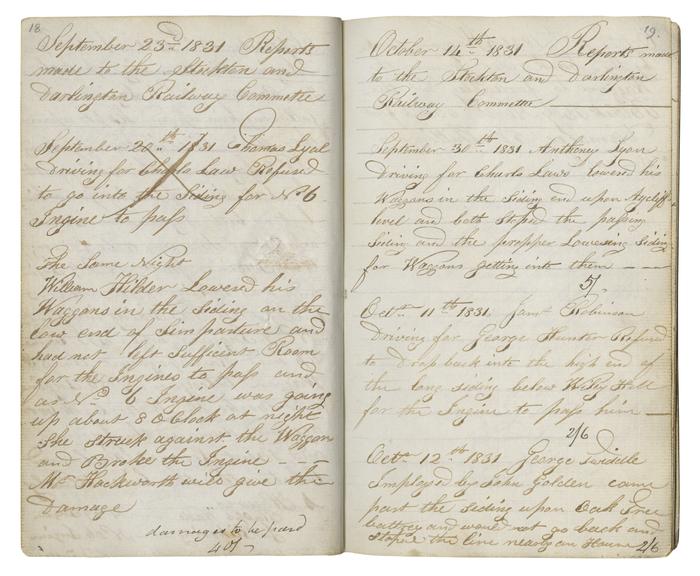 18.
September 23rd 1831 Reports
made to the Stockton and
Darlington Railway Committee
September 20th 1831 Thomas Lyal
Driving for Charls Law Refused
to go into the Siding for No 6
Ingine to pass
The Same Night
William Hilder Lowered his
Waggans in the Siding on the
low end of Simpasture and
had not left Sufficent Room
for the Ingines to pass and
as No 6 Ingine was going
up about 8 O Clock at night
She struck against the Waggan
and Broke the Ingine
Mr Hackworth will give the
Damage
damages to be paid
40/-
19.
October 14th 1831 Reports made
to the Stockton and Darlington
Railway Committee
September 30th 1831 Antheney Lyon
Driving for Charls Laws lowered his
Waggans in the Siding end upon Aycliff
level and both stoped the passing
Siding and the propper Lowering Siding
for Waggans getting into them
5/
Octr 11th 1831 Jams Robinson
Driving for George Hunter Refused
to Drop back into the high end of
the long siding below Hill
for the Ingine to pass him
2/6
Octr 12th 1831 George Twiddle
Imployed by John Golden came
past the Siding upon Oak Tree
battrey and would not go back and
stoped the line nearly an Houre 2/6